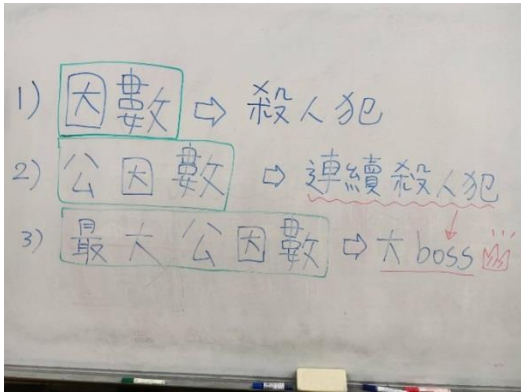 1) 因數 ⇨ 殺人犯
2) 公因數 ⇨ 連續殺人犯
3) 最大公因數 ⇨ 大 boss